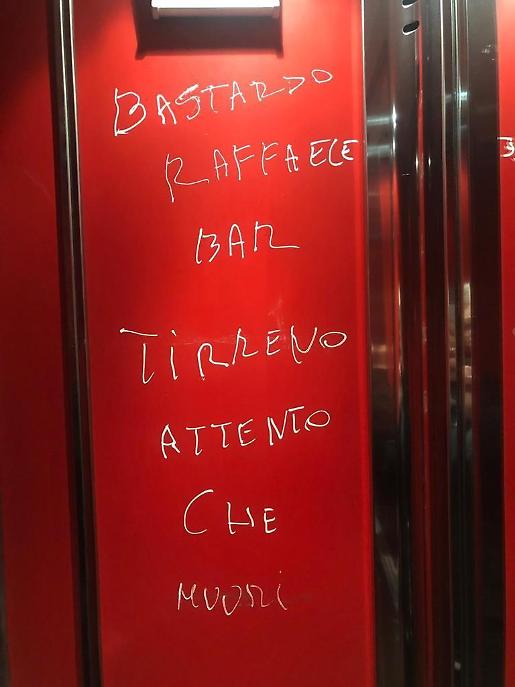 BASTARDO
RAFFAELE
BAR
TIRRENO
ATTENTO
CHE
MUORI